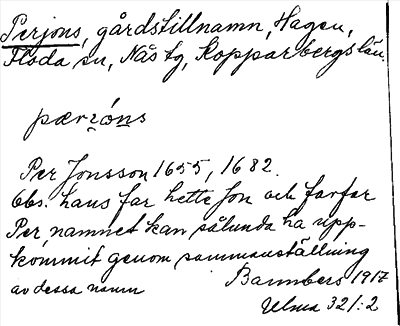 Perjons, gårdstillnamn, Hagen,
Floda sn, Nås tg, Kopparbergs län.
pærións
Per Jonsson 1655, 1682.
Obs. hans far hette Jon och farfar
Per, namnet kan sålunda ha upp-
kommit genom sammanställning
av dessa namn
Bannbers 1917
Ulma 321:2